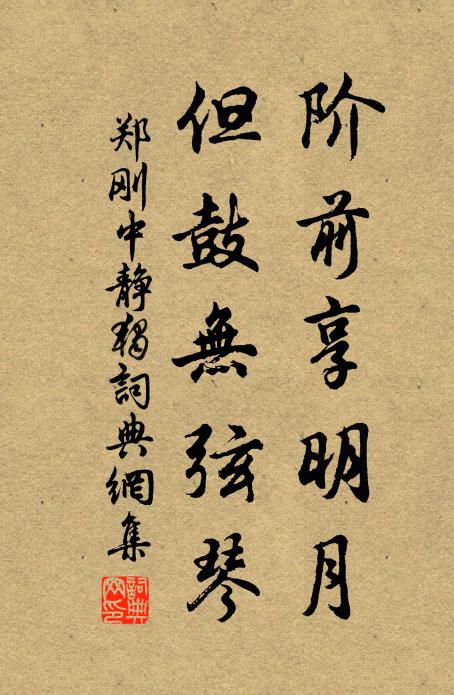 阶前享明月
但鼓無弦琴
郑刚中静独詞典網集
詞典网印